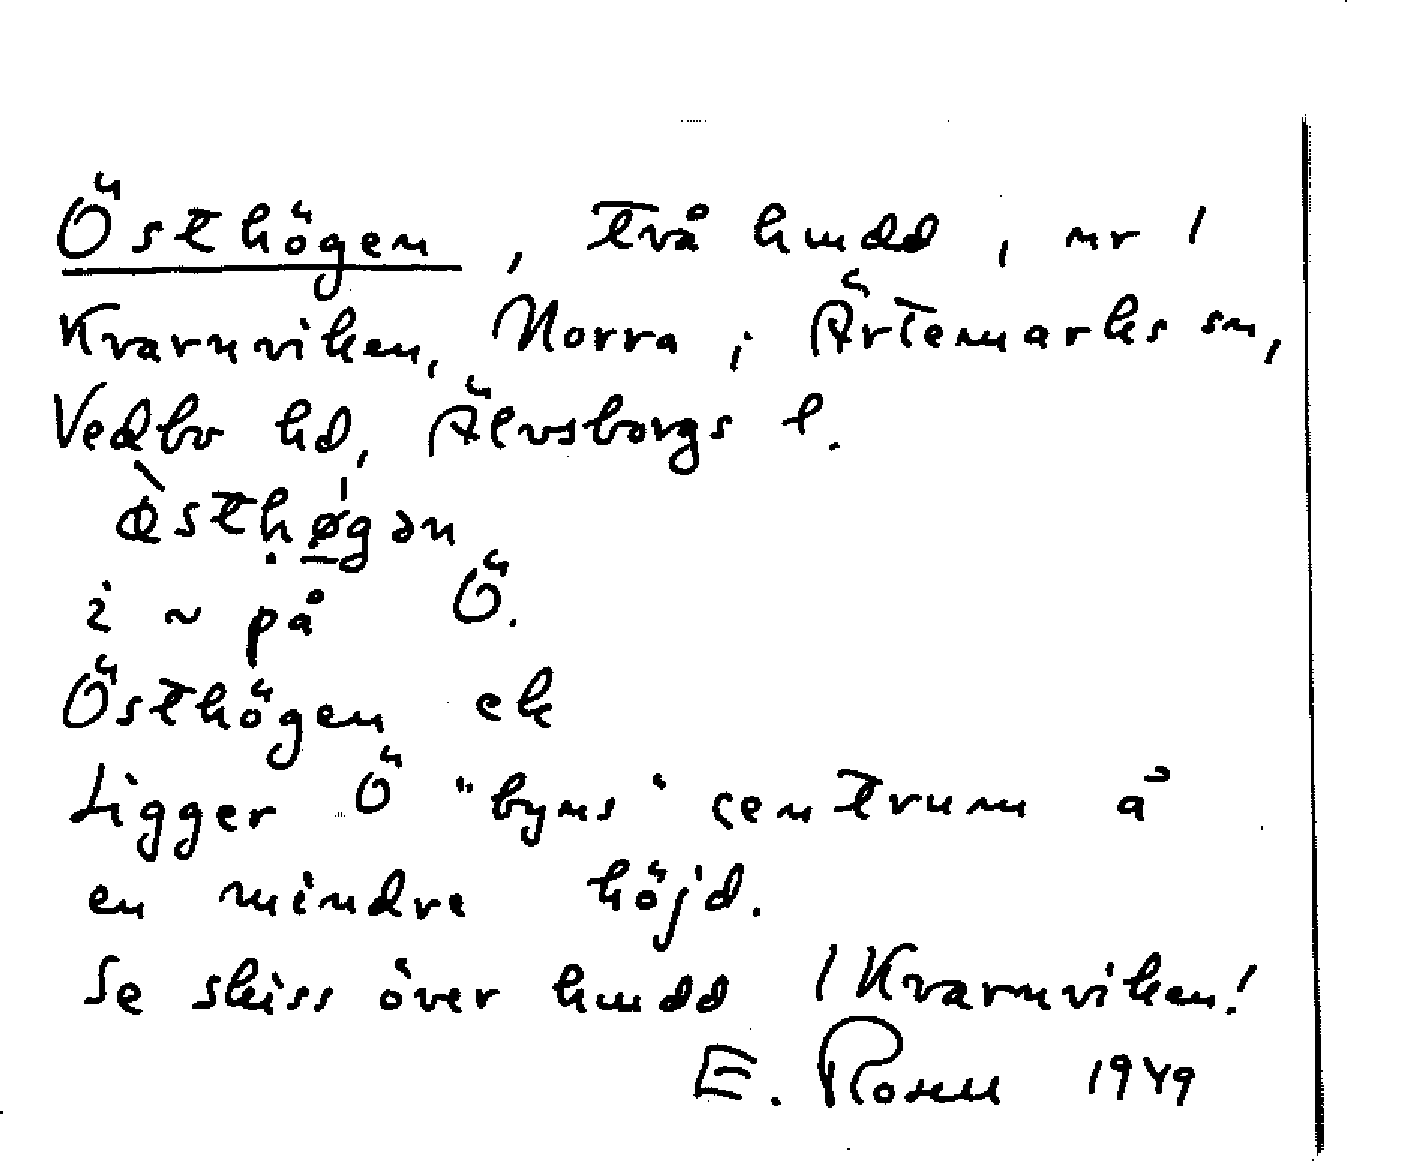 Östhögen, två hmdd, nr 1
Kvarnviken, Norra, i Ärtemarks sn,
Vedbo hd, Älvsborgs l.
i ~ på Ö.
Östhögen ek
Ligger Ö "byns" centrum å
en mindre höjd.
Se skiss över hmdd / Kvarnviken!
E. Rosell 1949